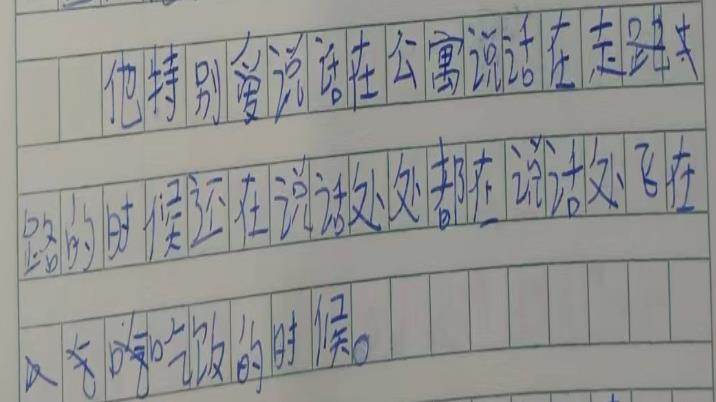 他特别爱说话在公寓说话在走路
路的时候还在说话处处都在说话处飞在
吃饭的时候。